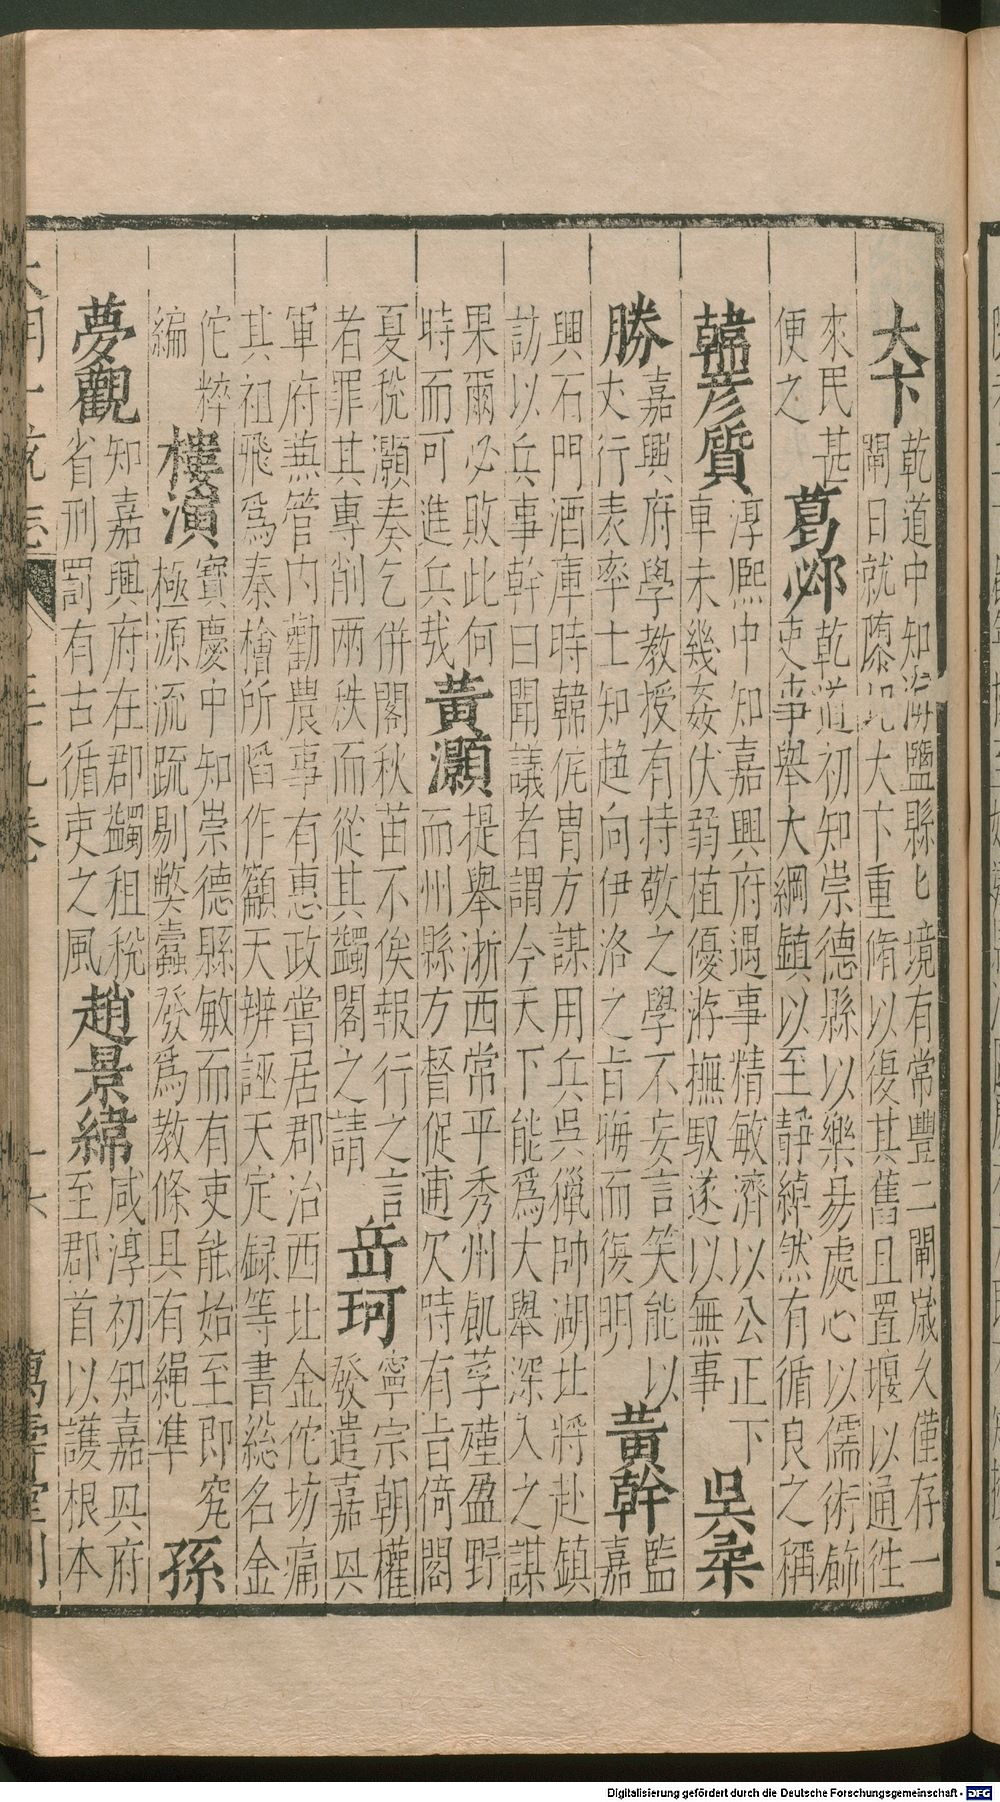 大卞
乾道中知海鹽縣匕境有常豐二閘嵗久僅存一
閘日就隳圮大卞重脩以復其舊且置堰以通徃
來民甚
便之
葛邲
乾道初知崇德縣以樂昜處心以儒術飾
吏事舉大綱鎮以至靜綽然有循良之稱
韓彥質
淳熙中知嘉興府遇事精敏濟以公正下
車未幾姦伏弱植優游撫馭遂以無事
吳柔
勝
嘉興府學教授有持敬之學不妄言笑能以
丈行表率士知趋向伊洛之㫖晦而復明
黃幹
監
嘉
興石門酒庫時韓侂胄方謀用兵吳獵帥湖北將赴鎮
訪以兵事幹曰聞議者謂今天下能爲大舉深入之謀
果爾必敗此何
時而可進兵㦲
黃灝
提舉浙西常平秀州飢莩殣盈野
而州縣方督促逋欠時有㫖倚閣
夏稅灝奏乞併閣秋苗不俟報行之言
者罪其專削兩秩而從其蠲閣之請
岳珂
寧宗朝權
發遣嘉㒷
軍府兼管内勸農事有惠政嘗居郡治西北金佗坊痛
其祖飛爲秦檜所䧟作籲天辨誣天定録等書緫名金
佗粹
編
樓演
寶慶中知崇德縣敏而有吏能始至即究
極源流疏剔弊蠹發爲教條具有繩準
孫
夢觀
知嘉興府在郡蠲租稅
省刑罰有古循吏之風
趙景緯
咸淳初知嘉㒷府
至郡首以護根本
大明一統志 三十九卷 十六 萬壽堂刊
Digitalisierung gefördert durch die Deutsche Forschungsgemeinschaft - DFG